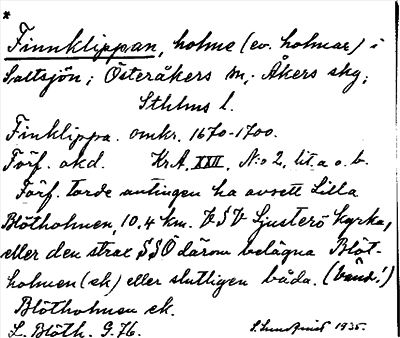 *
Finnklippan, holme (ev. holmar) i
Saltsjön; Österåkers sn; Åkers skg;
Sthlms l.
Finklippa. omkr. 1670-1700.
Förf. okd. Kr.A. XXII, N:o 2, lit. a o. b.
Förf. torde antingen ha avsett Lilla
Blötholmen, 10.4 km. VSV Ljusterö kyrka,
eller den strax SSO därom belägna Blöt-
holmen (ek) eller slutligen båda. (band!)
Blötholmen ek.
L. Blöth. G.76.
S. Lundqvist 1935.